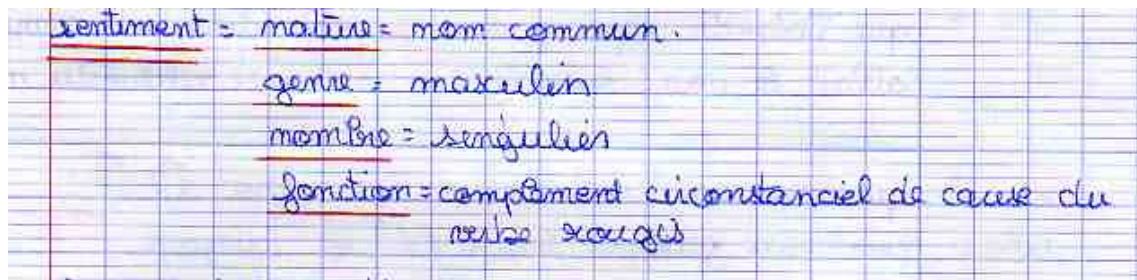 sentiment = nature = nom commun.
genre = masculin
nombre = singulier
fonction = complément circonstanciel de cause du
verbe rougis